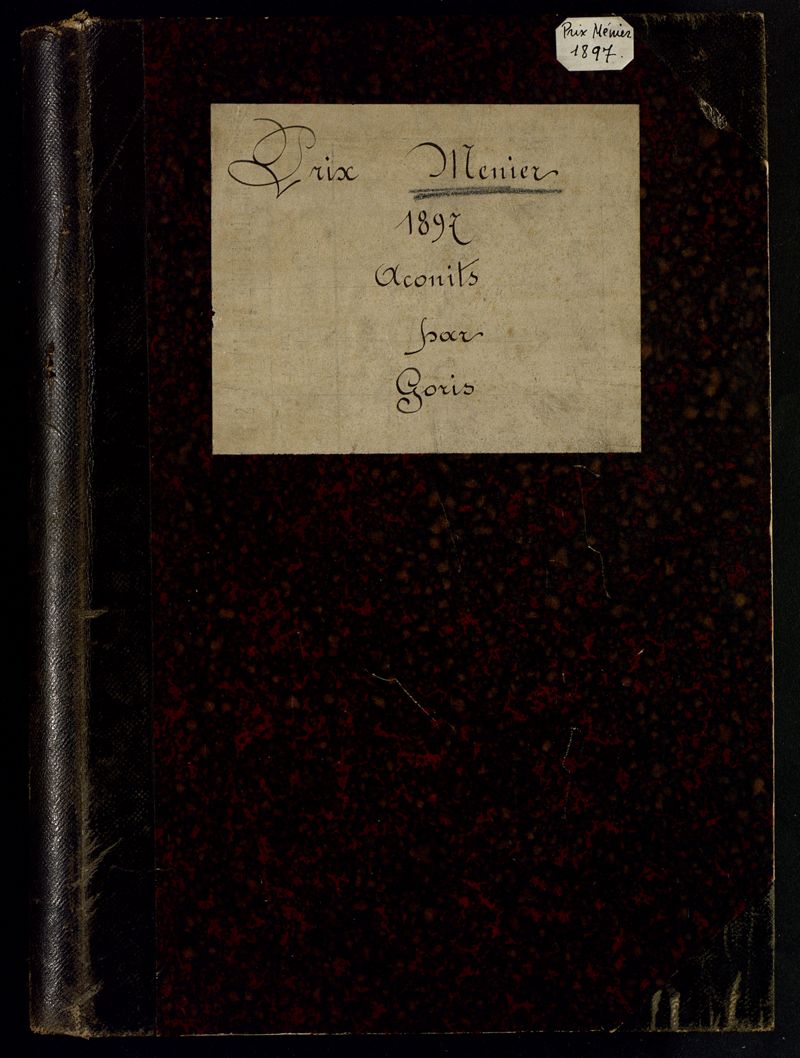 Prix Ménier
1897.
Prix Menier
1897
Aconits
par
Goris